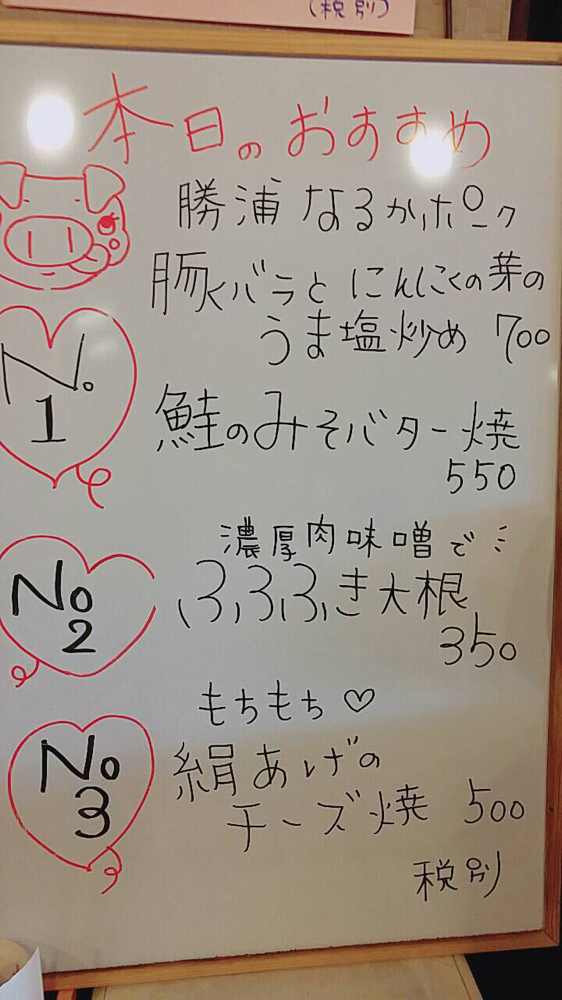 (税別)
本日のおすすめ
勝浦 なるかポーク
豚バラと にんにくの芽の
うま塩炒め 700
No.
1
鮭のみそバター焼
550
濃厚肉味噌で
No
2
ふろふき大根
350
もちもち♡
No
3
絹あげの
チーズ焼 500
税別